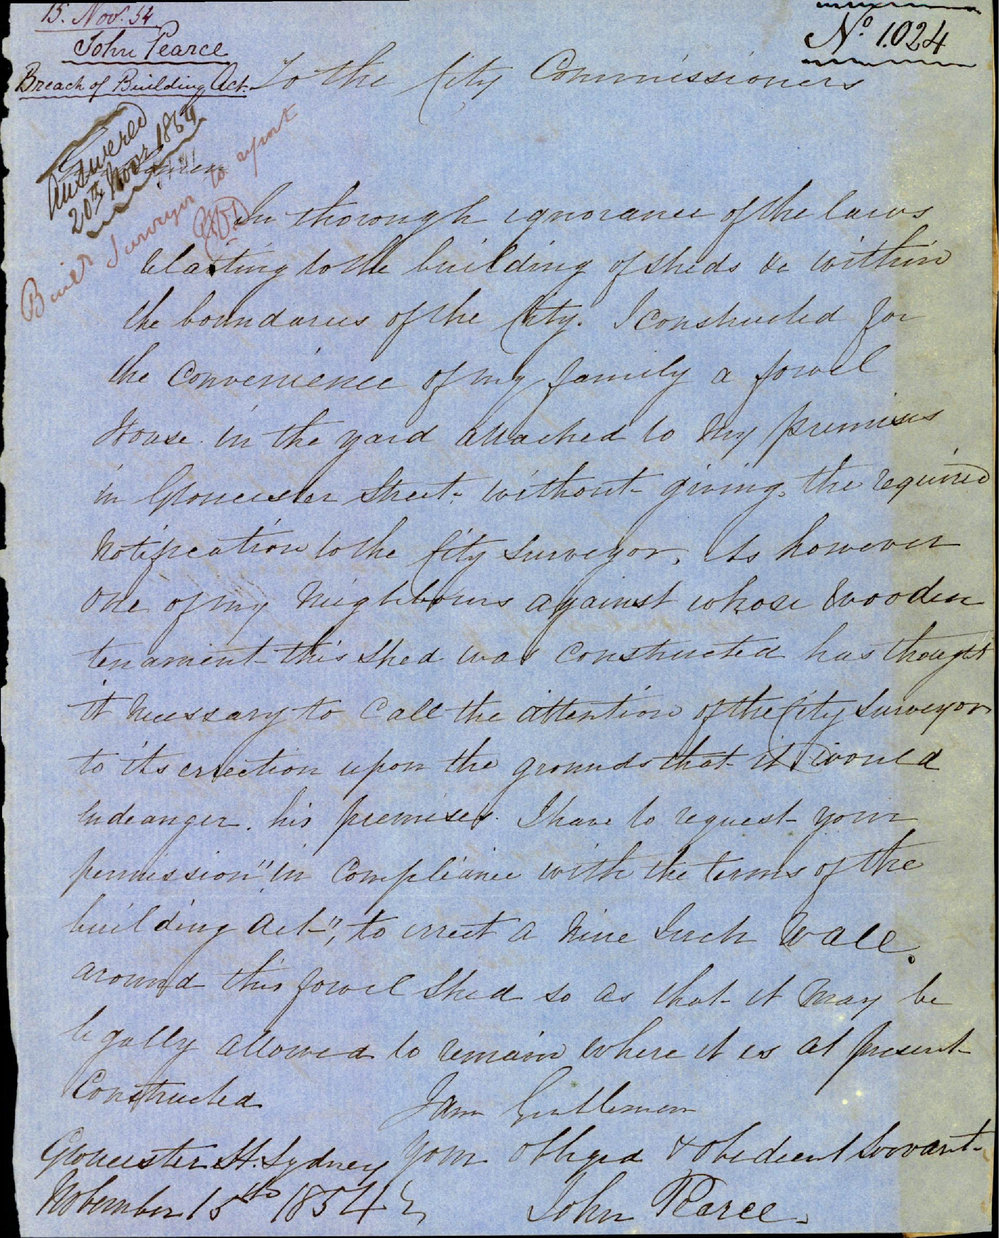 15. Nov. 54
John Pearce
Breach of Building Act
No. 1.024
To the City Commissioners
Answered
20th Novr 1854
Build Surveyor to report
Gentlemen
In thorough ignorance of the laws
relating to the building of sheds &c within
the boundaries of the City. I constructed for
the convenience of my family a fowel
House in the yard attached to my premises
in Gloucester Street without giving the required
Notification to the City Surveyor. As however
one of my Neighbours against whose Wooden
tenament this Shed was constructed has thought
it necessary to call the attention of the City Surveyor
to its errection upon the grounds that it would
indeanger his premises. I have to request your
permission "in compliance with the terms of the
building Act", to errect a Nine Inch Wall
around this fowel Shed so as that it may be
legally allowed to remain where it is at present
Constructed
I am Gentlemen
Your obliged & obedient Servant
Gloucester St. Sydney
November 15th 1854
John Pearce